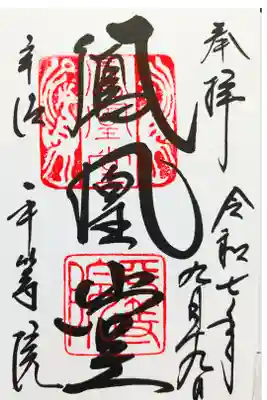 奉拝
令和七年
九月十九日
鳳凰堂
宇治 平等院